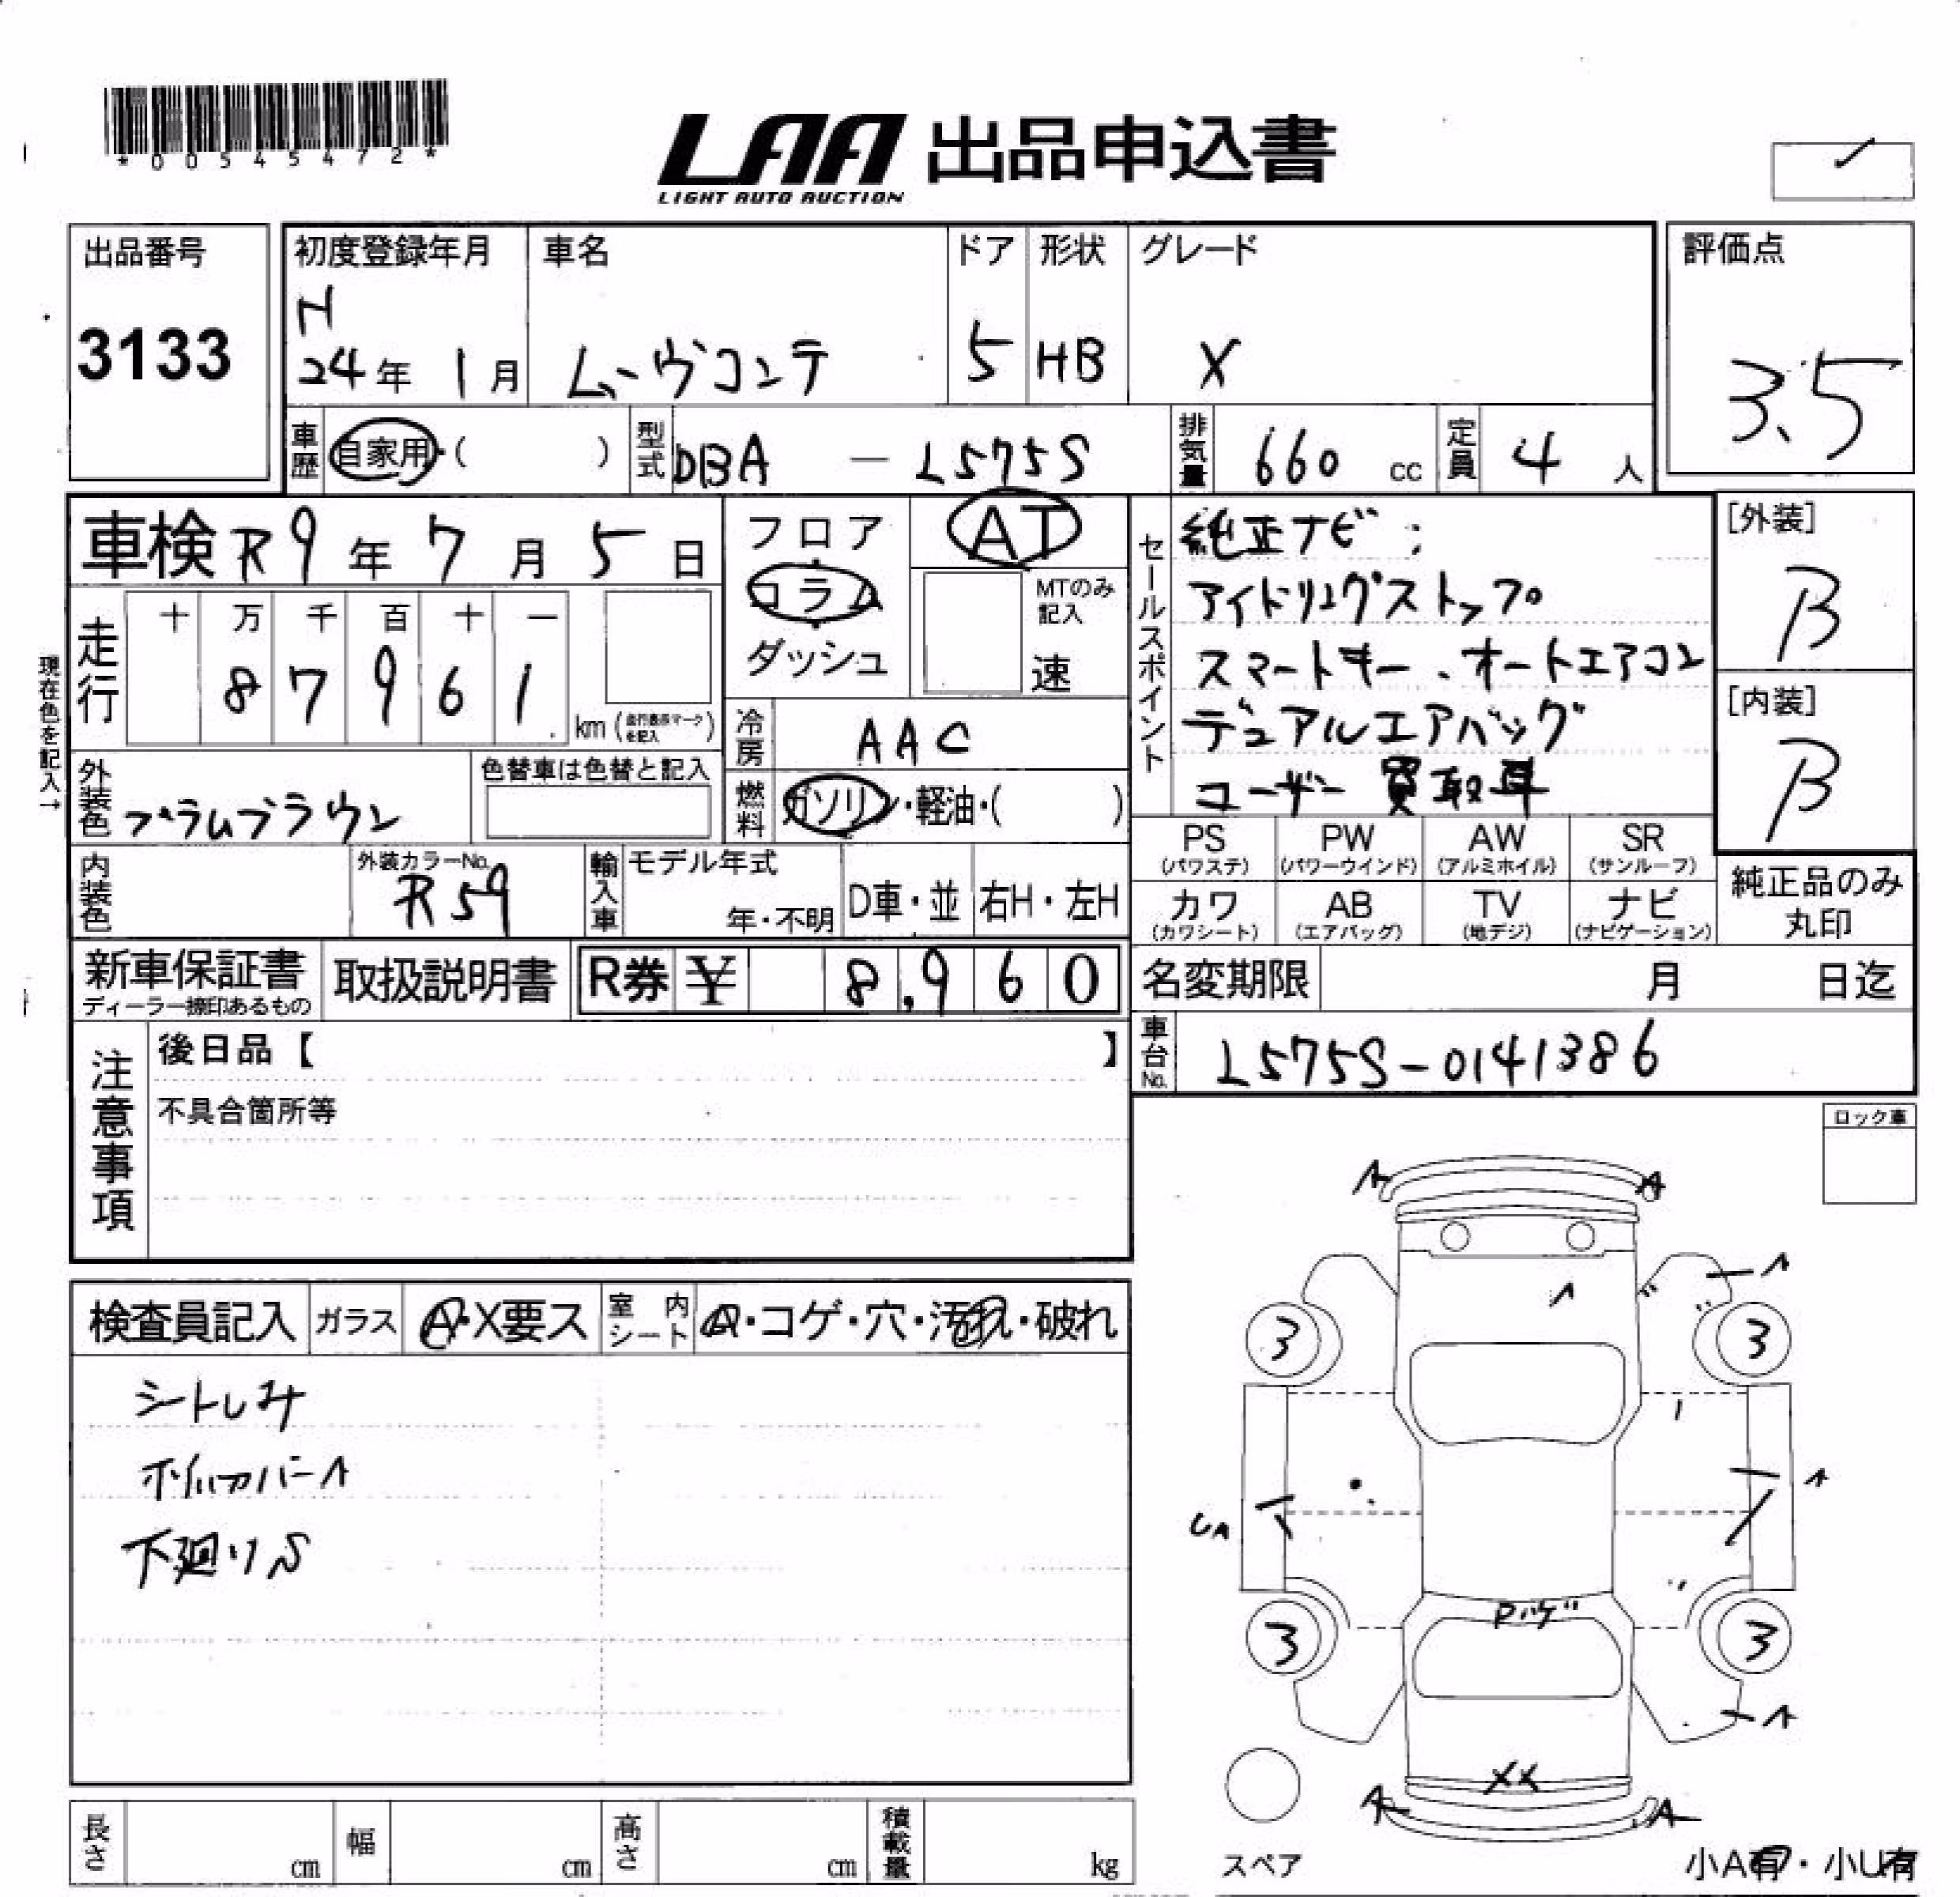 *00545472*
LAA 出品申込書
LIGHT AUTO AUCTION
出品番号
3133
初度登録年月
H
24年 1月
車名
ムーヴコンテ
ドア
5
形状
HB
グレード
X
評価点
3.5
車歴 自家用・( )
型式 DBA - L575S
排気量 660 cc
定員 4 人
車検 R9年 7月 5日
走行
十 万 千 百 十 一
8 7 9 6 1
km (走行表示マークを記入)
現在色を記入→
外装色 プラムブラウン
色替車は色替と記入
内装色
外装カラーNo.
R59
フロア
コラム
ダッシュ
AT
MTのみ記入
速
冷房 AAC
燃料 ガソリン・軽油・( )
輸入車
モデル年式
年・不明
D車・並
右H・左H
セールスポイント
純正ナビ;
アイドリングストップ
スマートキー、オートエアコン
デュアルエアバッグ
ユーザー買取車
[外装]
B
[内装]
B
PS (パワステ)
PW (パワーウインド)
AW (アルミホイル)
SR (サンルーフ)
カワ (カワシート)
AB (エアバッグ)
TV (地デジ)
ナビ (ナビゲーション)
純正品のみ
丸印
新車保証書
ディーラー捺印あるもの
取扱説明書
R券 ¥ 8,960
名変期限 月 日迄
車台No. L575S-0141386
注意事項
後日品【 】
不具合箇所等
ロック車
検査員記入
ガラス A・X要ス
室内シート A・コゲ・穴・汚れ・破れ
シートしみ
ホイルカバーA
下廻りS
A A
A A
3 3
A
UA
Pハゲ
3 3
A
XX
A A
スペア
小A有・小U有
長さ cm
幅 cm
高さ cm
積載量 kg